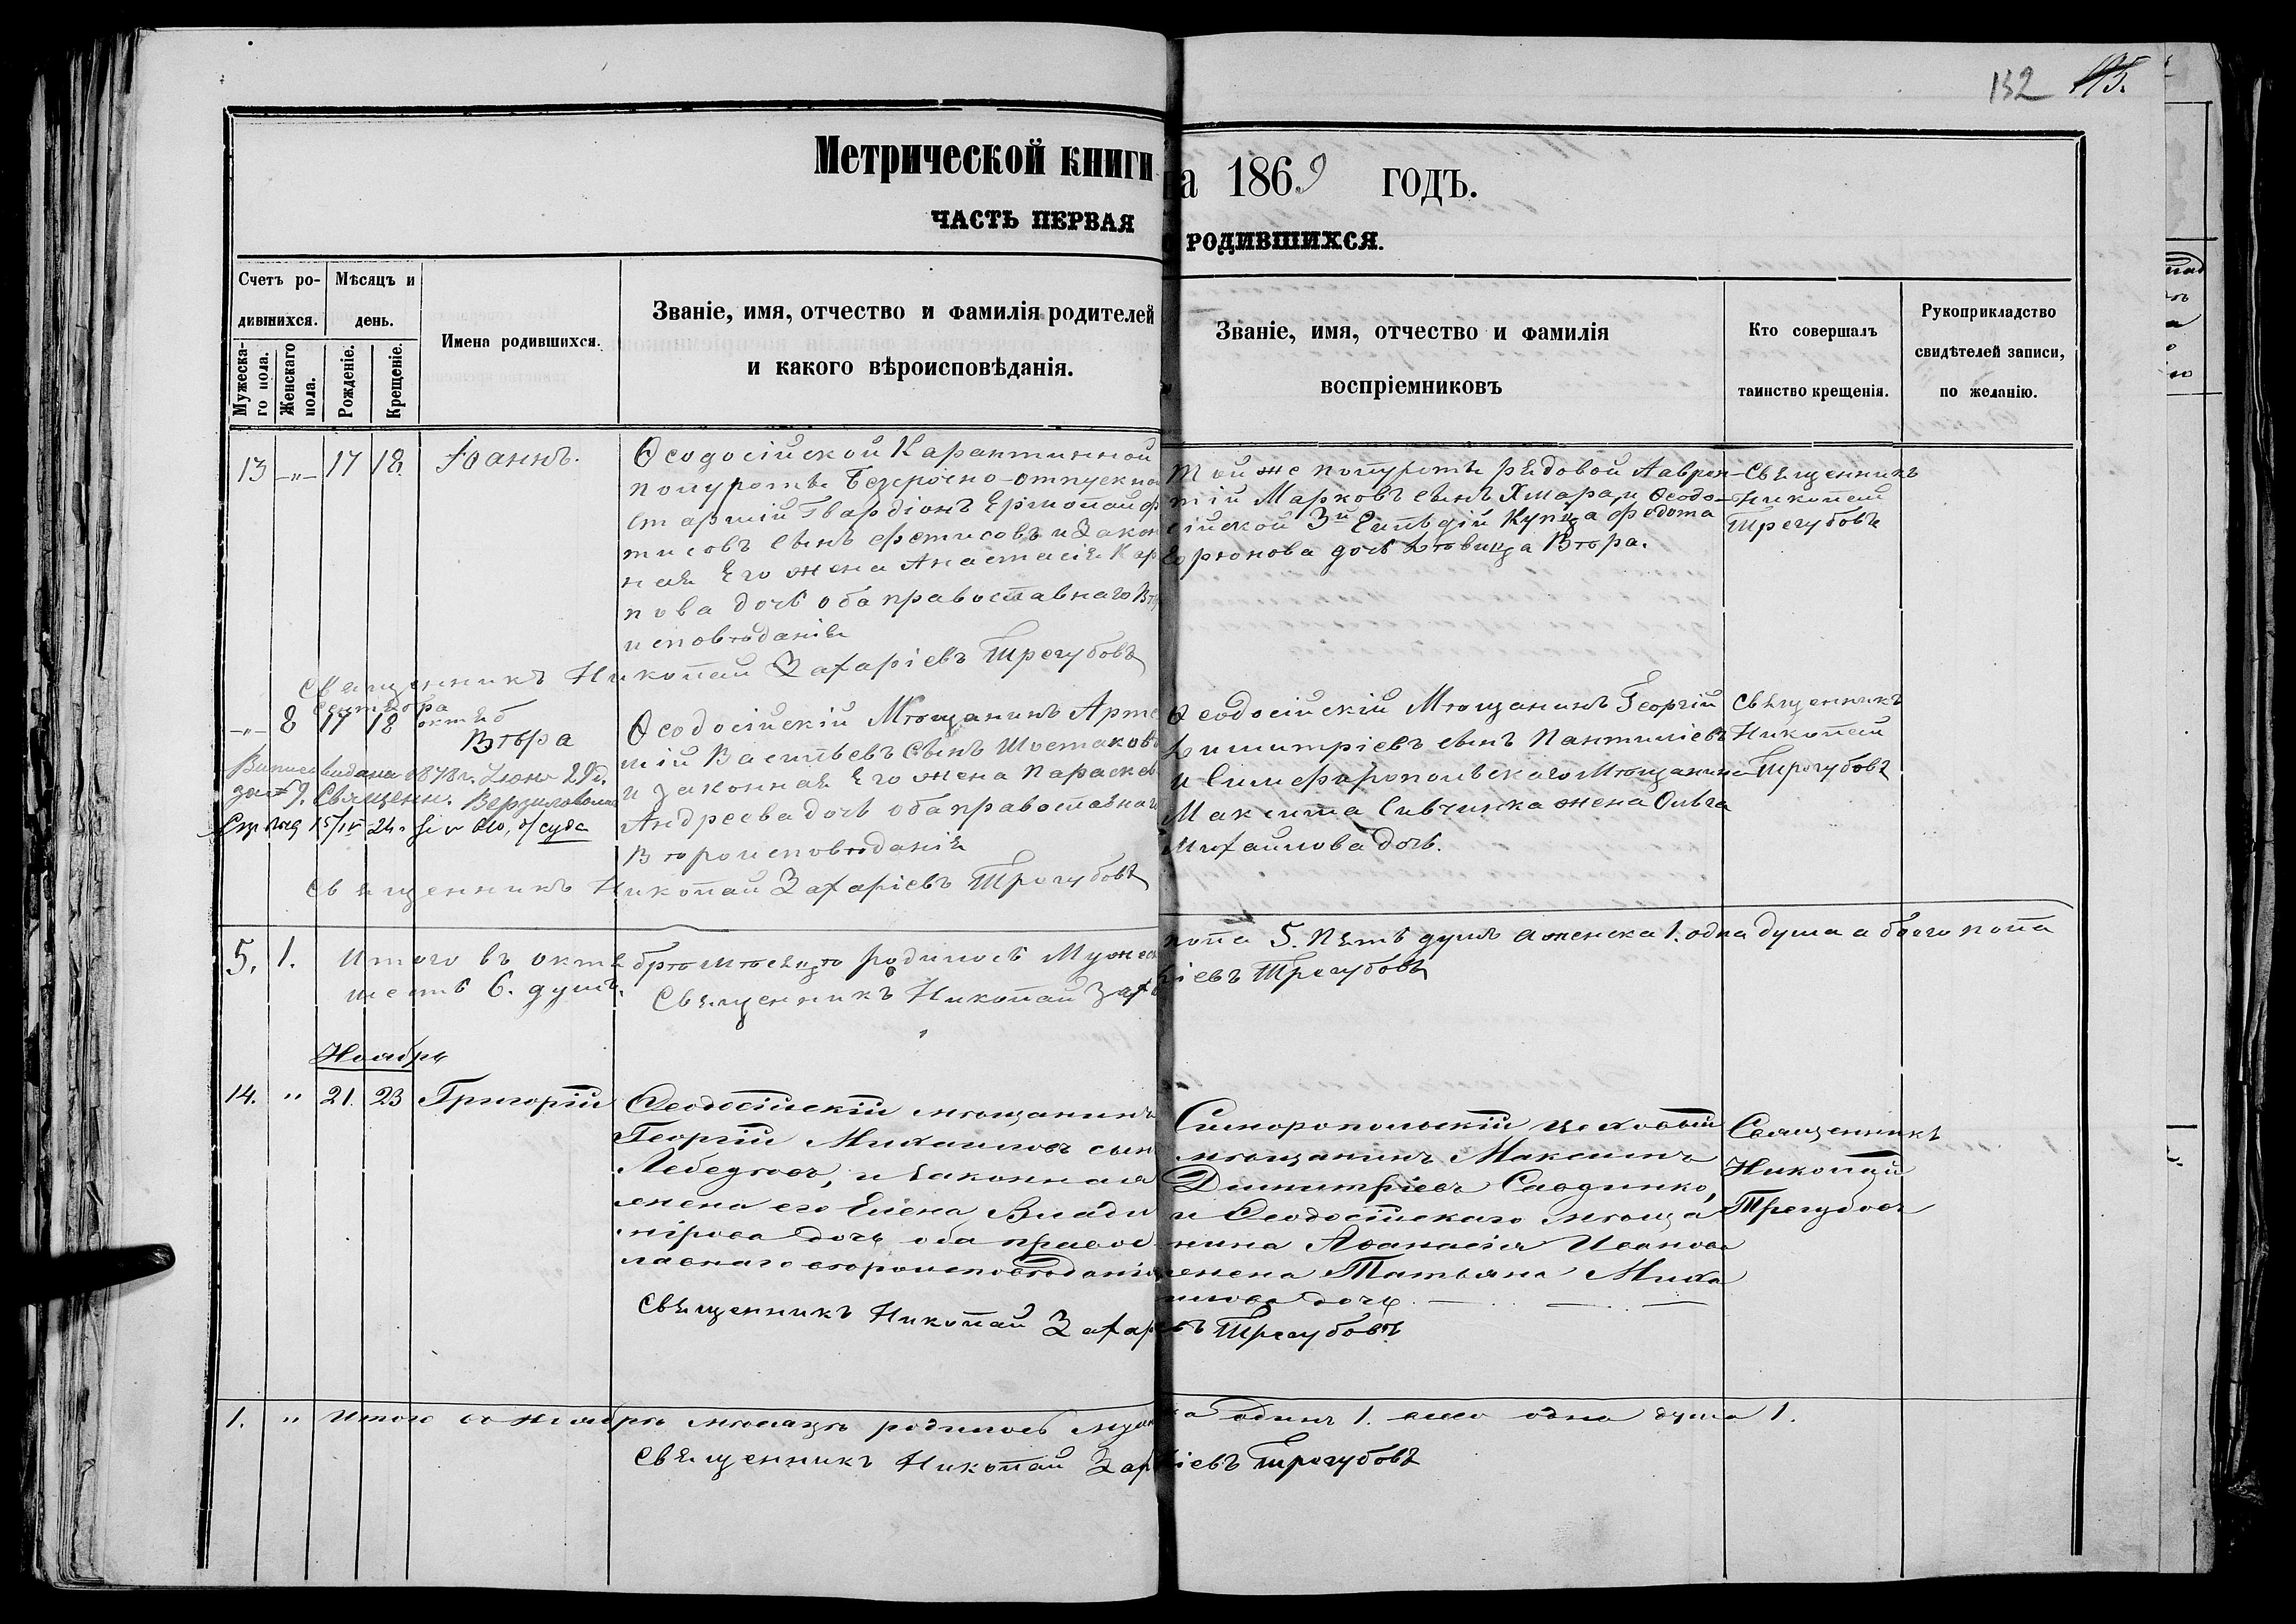 132 195.
Метрической книги на 1869 годъ.
ЧАСТЬ ПЕРВАЯ О РОДИВШИХСЯ.
Счетъ ро-
дившихся.
Мужеска-
го пола.
Женскаго
пола.
Мѣсяцъ и
день.
Рожденіе.
Крещеніе.
Имена родившихся.
Званіе, имя, отчество и фамилія родителей
и какого вѣроисповѣданія.
Званіе, имя, отчество и фамилія
воспріемниковъ
Кто совершалъ
таинство крещенія.
Рукоприкладство
свидѣтелей записи,
по желанію.
13 -„- 17 18 Іоаннъ.
Ѳеодосійской Карантинной
полуроты Безсрочно-отпускно
старшій Гвардіонъ Ермолай Ф
тисовъ сынъ Фетисовъ и Закон
ная Его жена Анастасія Кар
пова дочь оба православнаго Вѣр
исповѣданія
Той же полуроты рядовой Лаврен-
тій Марковъ сынъ Хмара, и Ѳеодо-
сійской 3й Гильдіи Купца Федота
дочь дѣвица Вѣра.
Священникъ
Николай
Трегубовъ
Священникъ Николай Захаріевъ Трегубовъ
Сентября
-„- 8 17 18 октяб
Вѣра
Ѳеодосійскій Мѣщанинъ Арте
мій Васильевъ Сынъ Шостаковъ
и законная Его жена Параскев
Андреева дочь оба православнаг
Вѣроисповѣданія
Ѳеодосійскій Мѣщанинъ Георгій
Димитріевъ сынъ Пантиліевъ
и Симферопольскаго Мѣщанина
Максима Савчинка жена Ольга
Михаилова дочь.
Священникъ
Николай
Трегубовъ
выдана 1878 г. 29 д.
Священн.
Священникъ Николай Захаріевъ Трегубовъ
5. 1. Итого въ октябрѣ мѣсяцѣ родилось Мужеск пола 5. Пять душъ а женска 1. одна душа а обоего пола
шесть 6. душъ.
Священникъ Николай Захаріевъ Трегубовъ
Ноябрь
14. „ 21. 23 Григорій
Ѳеодосійскій мѣщанинъ
Георгій Михаиловъ сын
Лебедѣвъ, и законная
жена его Елена Влади
мірова дочь оба правос
лавнаго вѣроисповѣданія
Симферопольскій цеховый
мѣщанинъ Максимъ
Димитріевъ Савдинко,
и Ѳеодосійскаго мѣща
нина Аѳанасія Иванова
жена Татьяна Миха
илова дочь.
Священникъ
Николай
Трегубовъ
Священникъ Николай Захаревъ Трегубовъ
1. „ Итого въ ноябрѣ мѣсяцѣ родилось муж ка одинъ 1. всего одна душа 1.
Священникъ Николай Заріевъ Трегубовъ